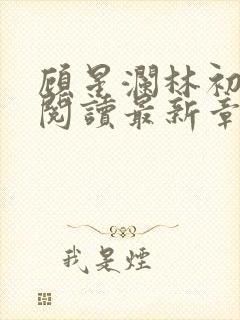 顾星瀾林初
閱讀最新章
我是煙